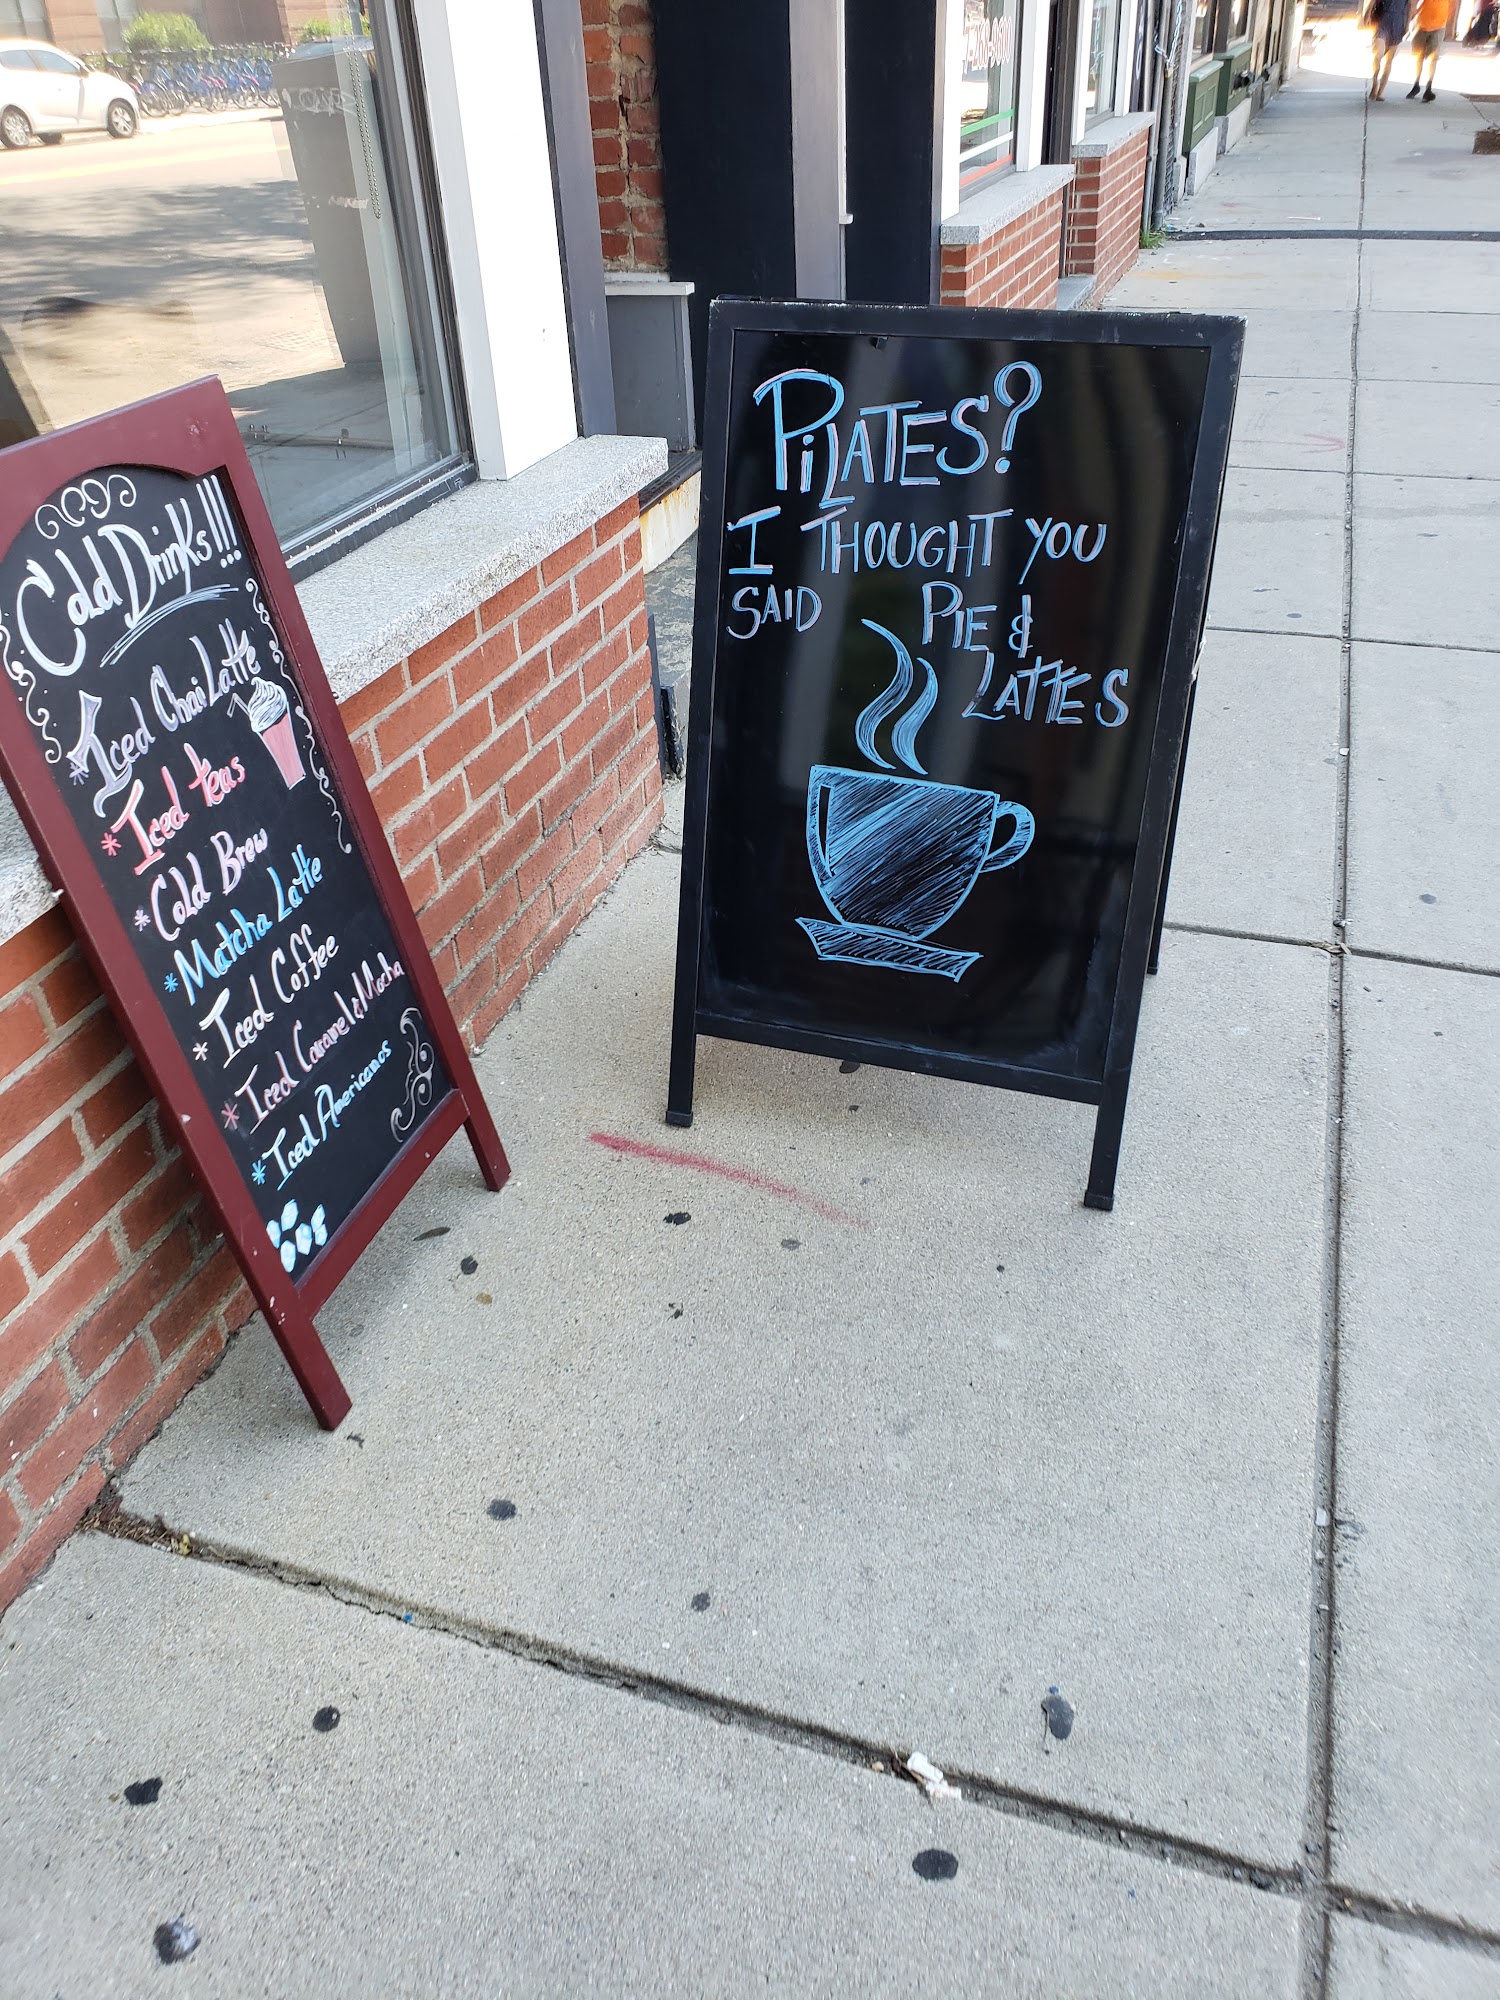 Cold Drinks!!!
* Iced Chai Latte
* Iced teas
* Cold Brew
* Matcha Latte
* Iced Coffee
* Iced Caramel & Mocha
* Iced Americanos
PiLATES?
I THOUGHT YOU
SAID PIE &
LATTES